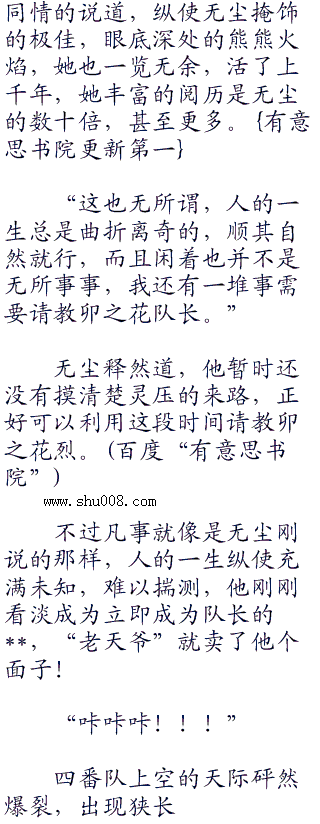 同情的说道，纵使无尘掩饰
的极佳，眼底深处的熊熊火
焰，她也一览无余，活了上
千年，她丰富的阅历是无尘
的数十倍，甚至更多。{有意
思书院更新第一}
“这也无所谓，人的一
生总是曲折离奇的，顺其自
然就行，而且闲着也并不是
无所事事，我还有一堆事需
要请教卯之花队长。”
无尘释然道，他暂时还
没有摸清楚灵压的来路，正
好可以利用这段时间请教卯
之花烈。(百度“有意思书
院”)
www.shu008.com
不过凡事就像是无尘刚
说的那样，人的一生纵使充
满未知，难以揣测，他刚刚
看淡成为立即成为队长的
**，“老天爷”就卖了他个
面子！
“咔咔咔！！！”
四番队上空的天际砰然
爆裂，出现狭长